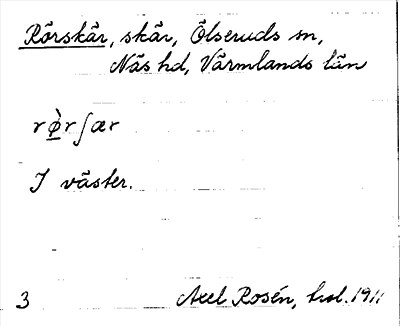 Rörskär, skär, Ölseruds sn,
Näs hd, Värmlands län
rø̀rʃær
I väster.
3 Axel Rosén, hol. 1911